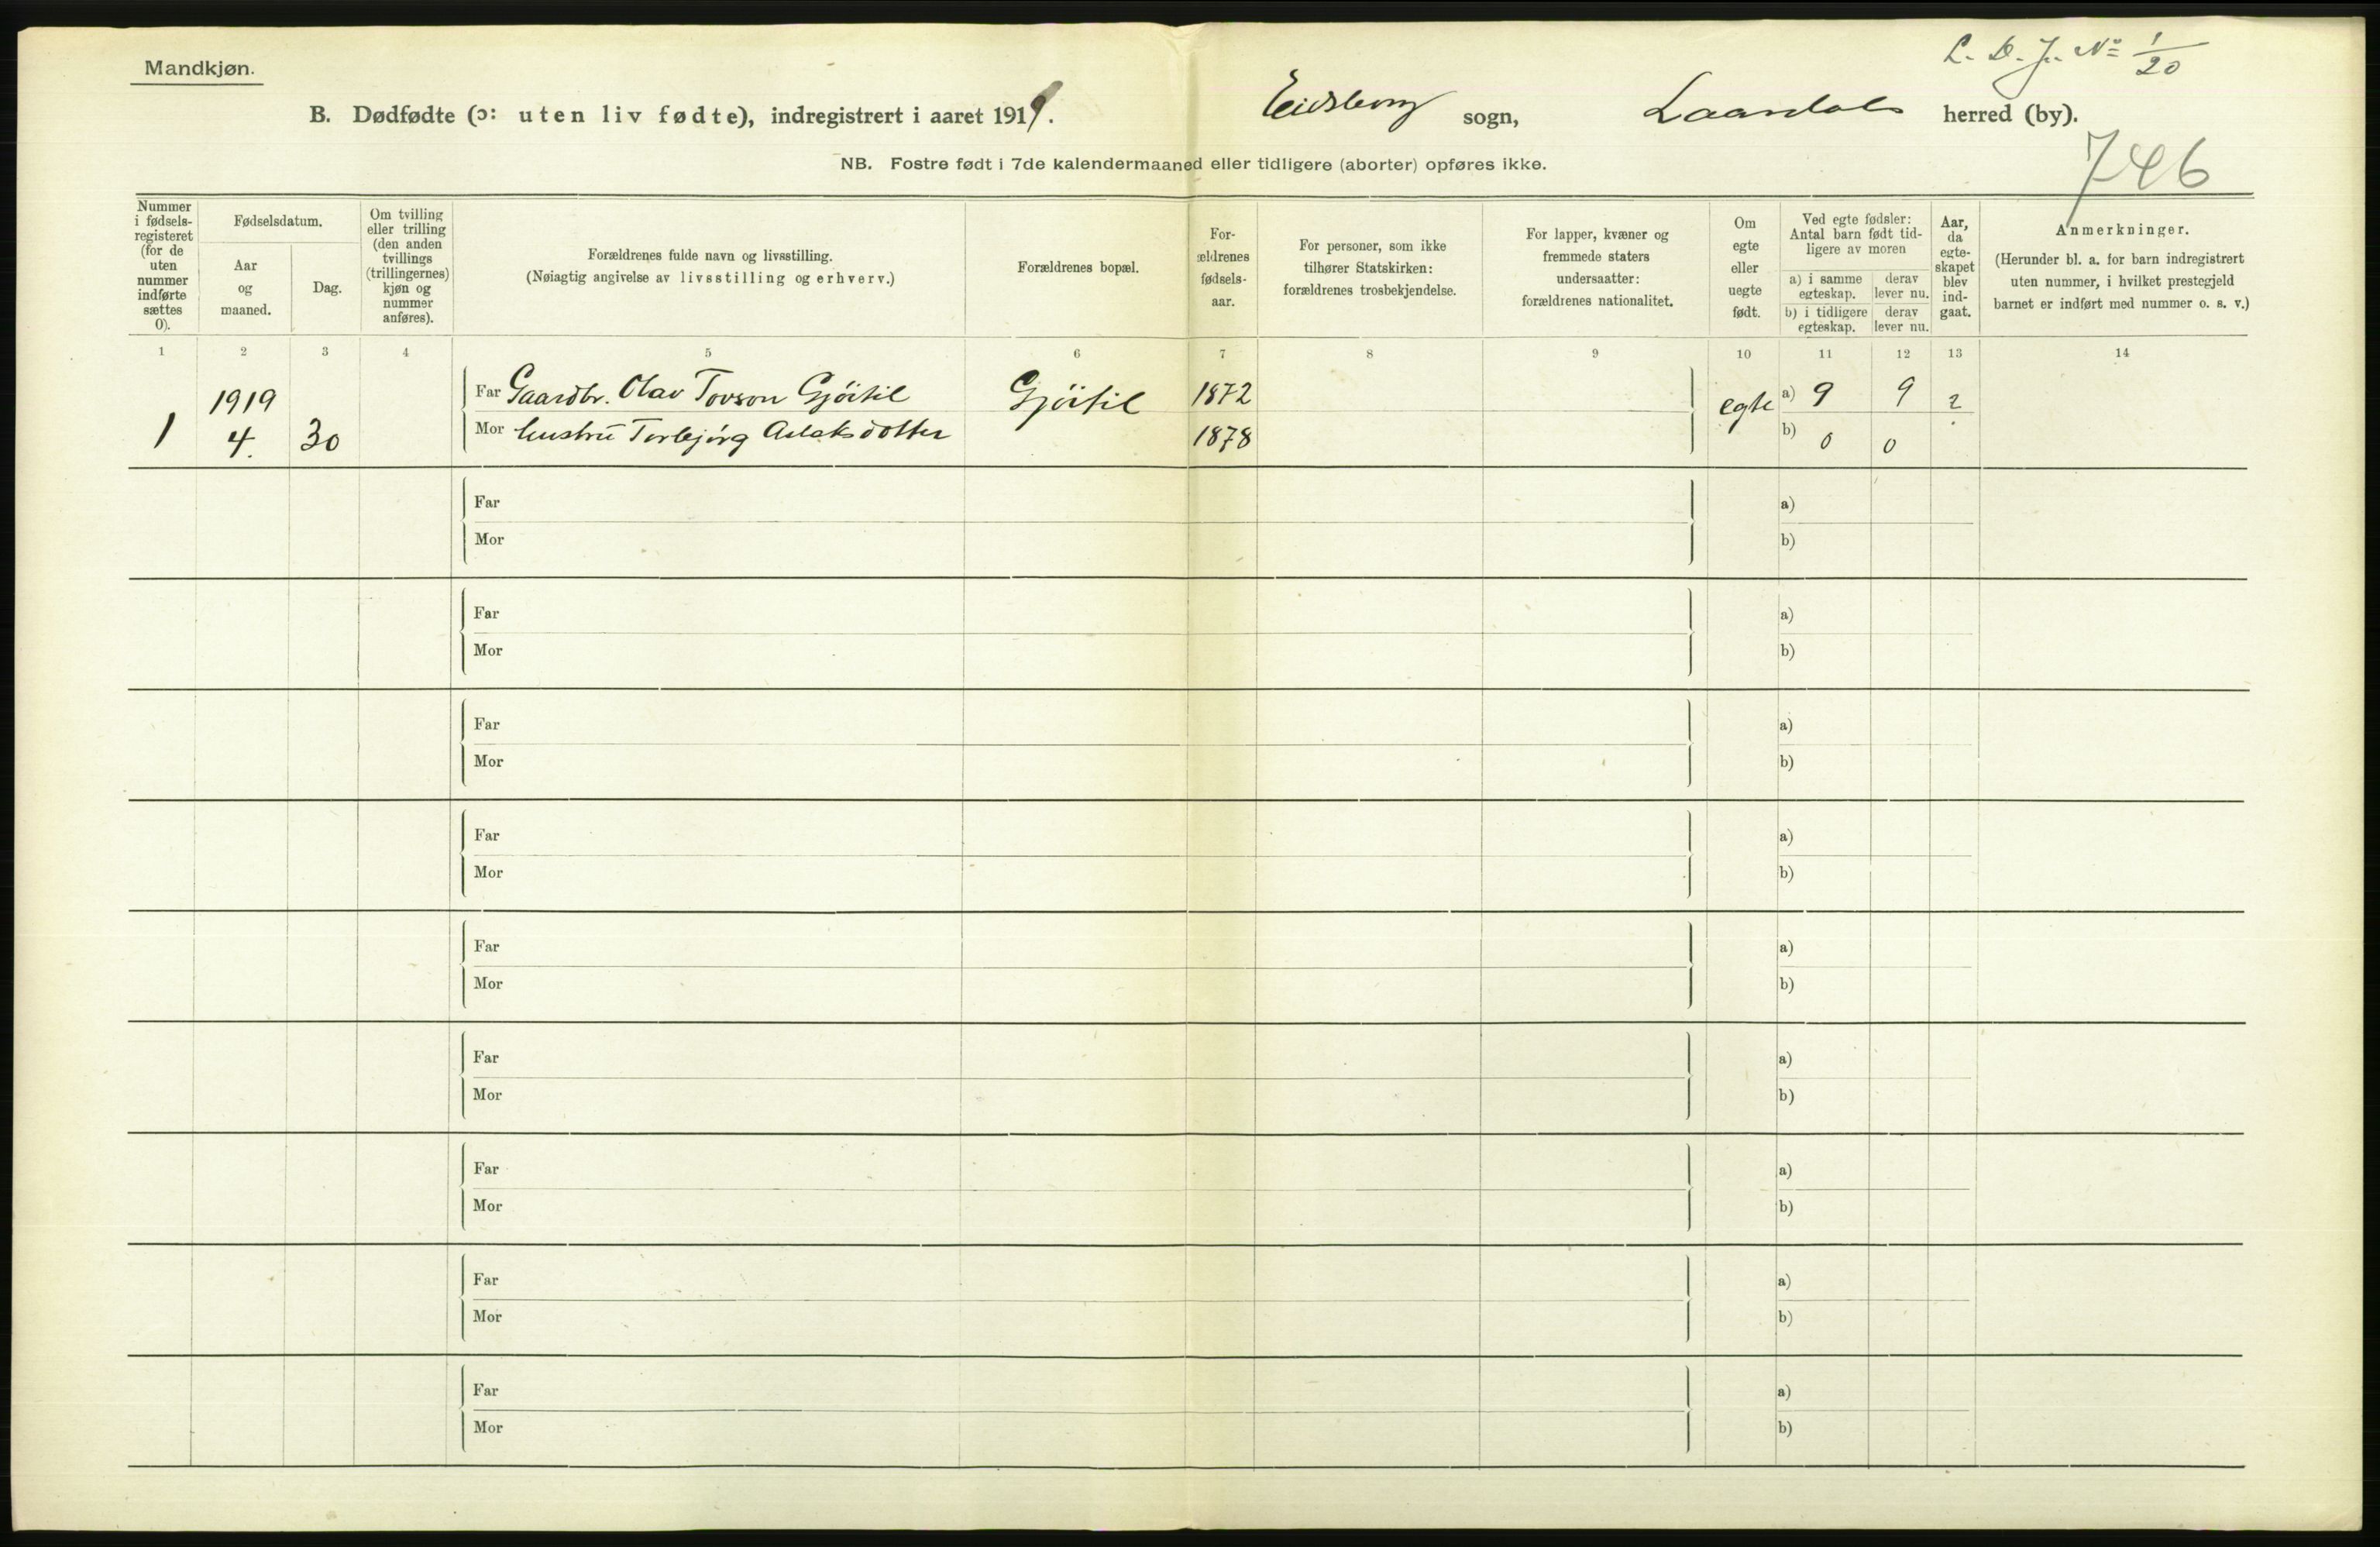 L. D. J. No 1/20
Mandkjøn.
B. Dødfødte (ɔ: uten liv fødte), indregistrert i aaret 1919. Eidsborg sogn, Laardals herred (by).
746
NB. Fostre født i 7de kalendermaaned eller tidligere (aborter) opføres ikke.
Nummer
i fødsels-
registeret
(for de
uten
nummer
indførte
sættes
0).
Fødselsdatum.
Aar
og
maaned.
Dag.
Om tvilling
eller trilling
(den anden
tvillings
(trillingernes)
kjøn og
nummer
anføres).
Forældrenes fulde navn og livsstilling.
(Nøiagtig angivelse av livsstilling og erhverv.)
Forældrenes bopæl.
For-
ældrenes
fødsels-
aar.
For personer, som ikke
tilhører Statskirken:
forældrenes trosbekjendelse.
For lapper, kvæner og
fremmede staters
undersaatter:
forældrenes nationalitet.
Om
egte
eller
uegte
født.
Ved egte fødsler:
Antal barn født tid-
ligere av moren
a) i samme
egteskap.
derav
lever nu.
b) i tidligere
egteskap.
derav
lever nu.
Aar,
da
egte-
skapet
blev
ind-
gaat.
Anmerkninger.
(Herunder bl. a. for barn indregistrert
uten nummer, i hvilket prestegjeld
barnet er indført med nummer o. s. v.)
1 2 3 4 5 6 7 8 9 10 11 12 13 14
1919 Far Gaardbr. Olav Tovson Gjöitil Gjöitil 1872 egte a) 9 9 2
1 4. 30 Mor hustru Torbjörg Aslaksdotter 1878 b) 0 0
Far a)
Mor b)
Far a)
Mor b)
Far a)
Mor b)
Far a)
Mor b)
Far a)
Mor b)
Far a)
Mor b)
Far a)
Mor b)
Far a)
Mor b)
Far a)
Mor b)